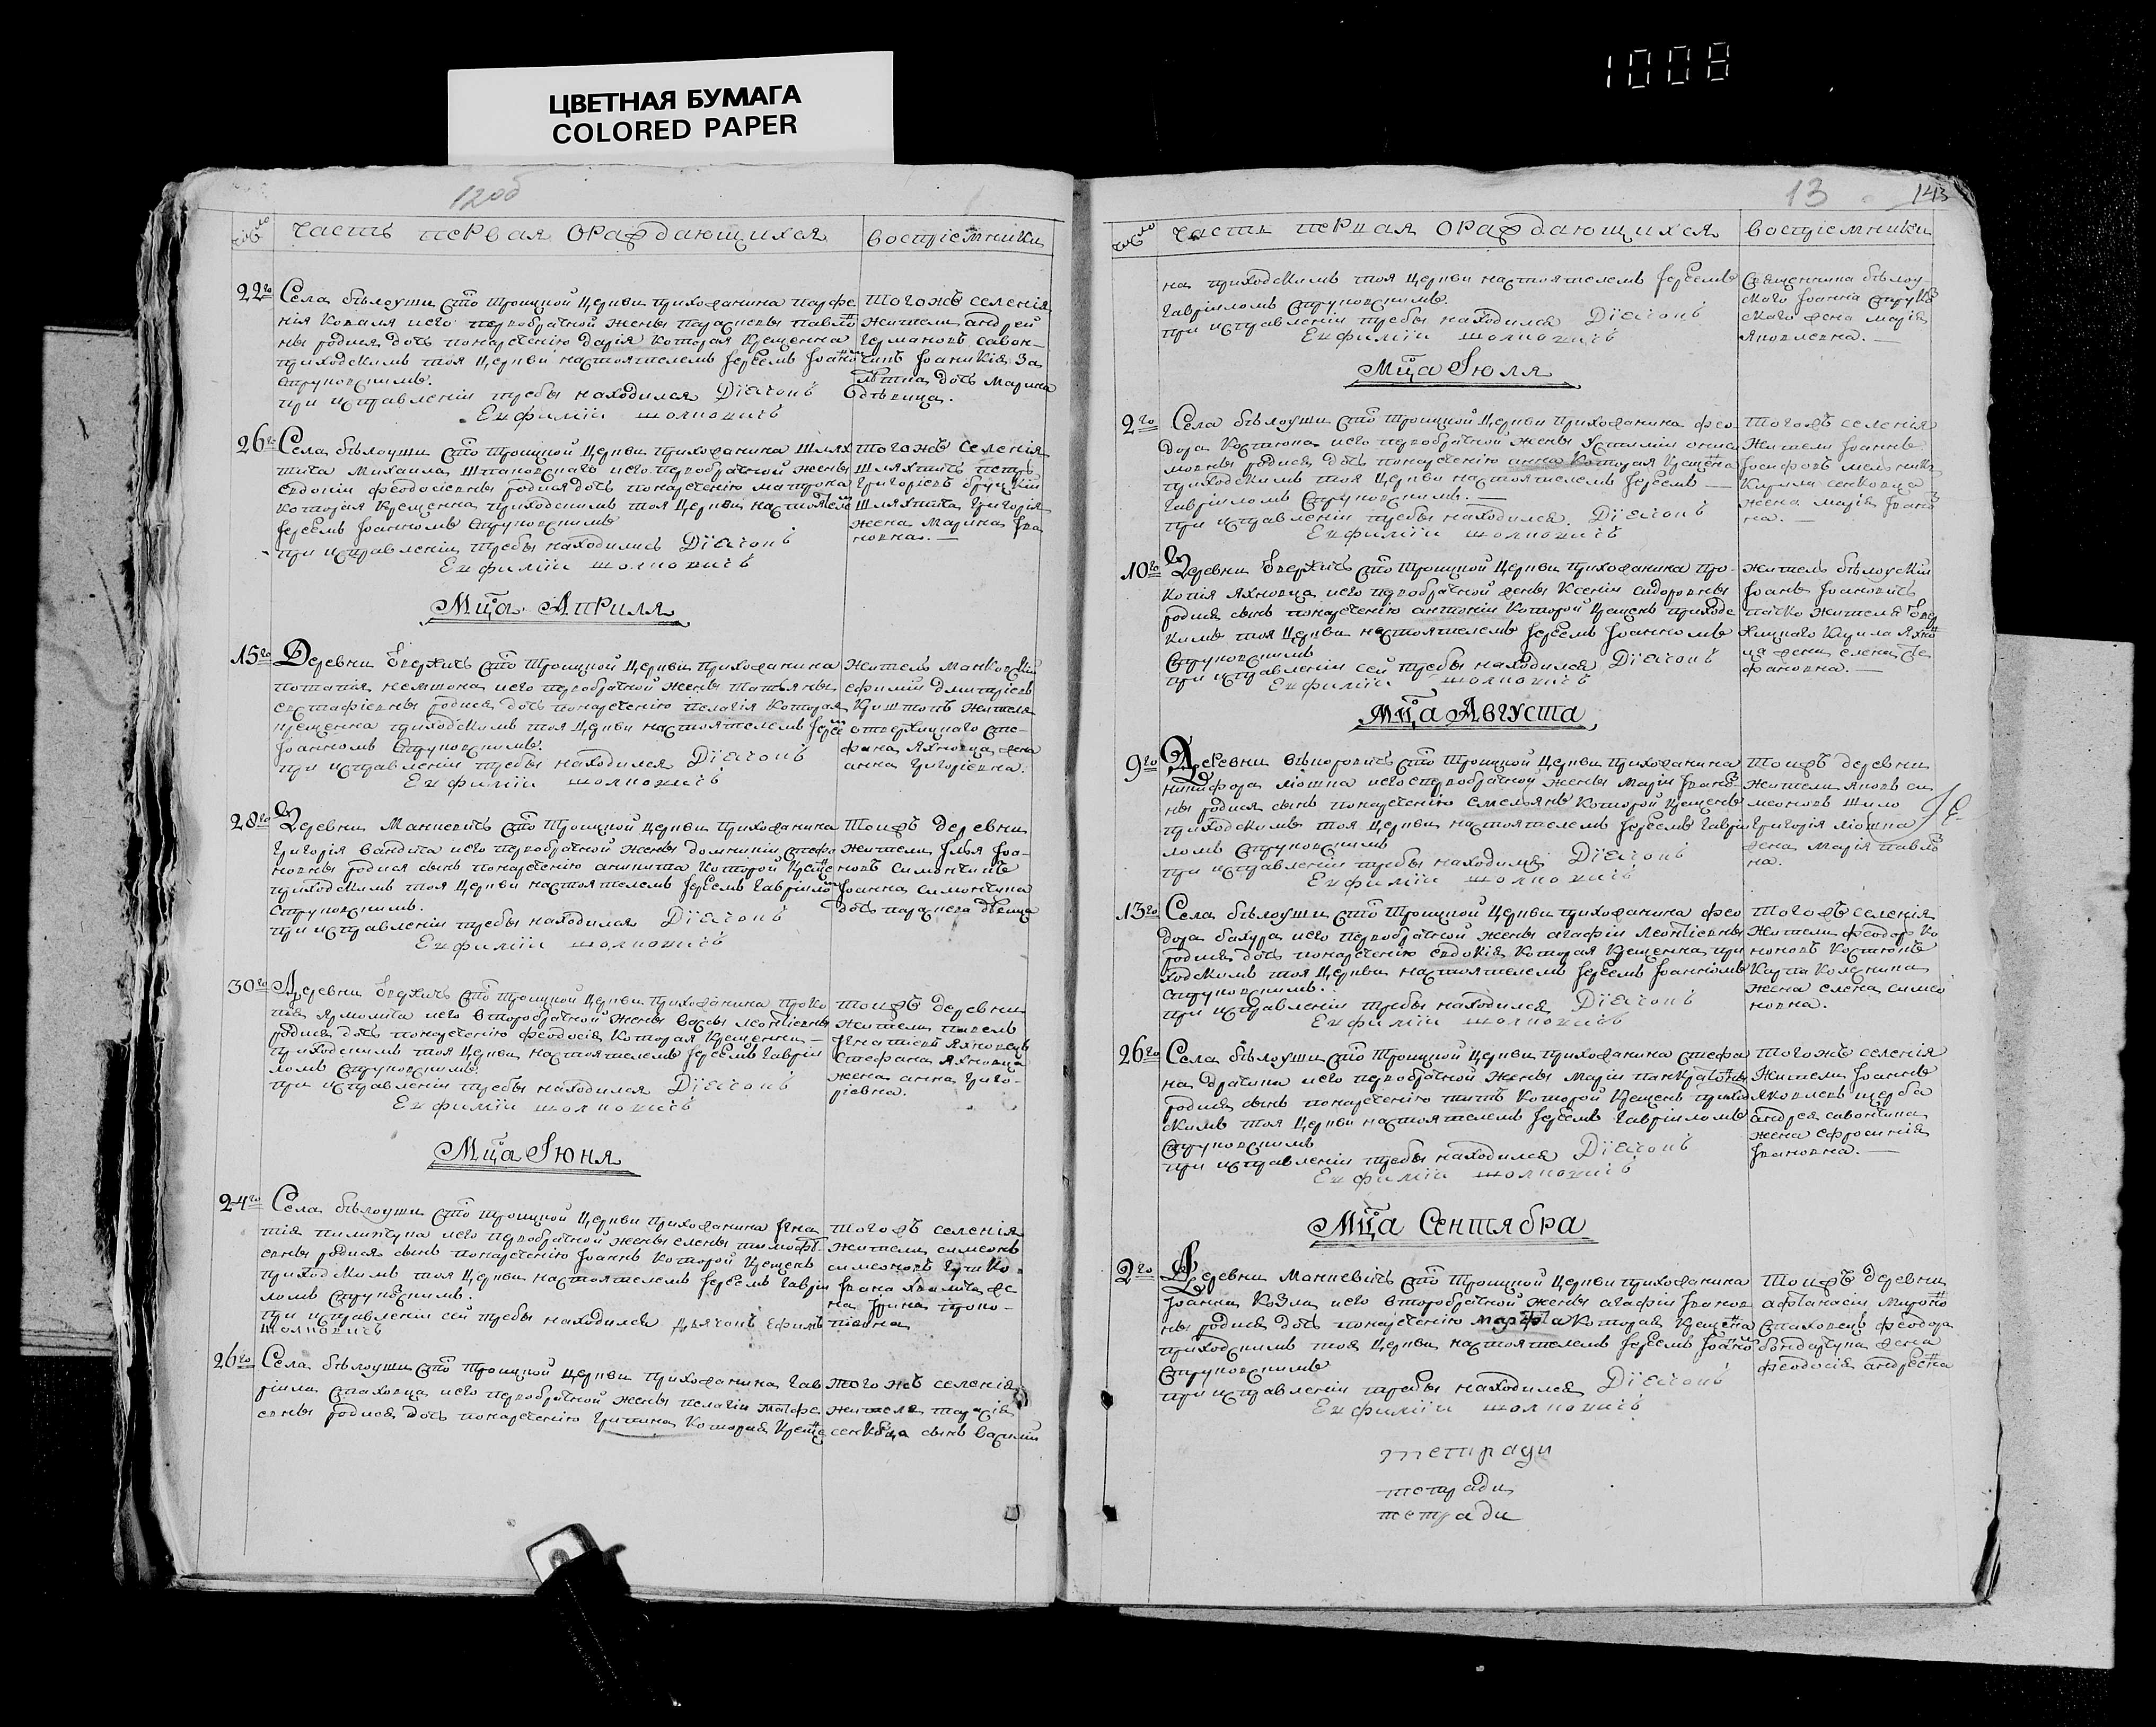 1008
ЦВЕТНАЯ БУМАГА
COLORED PAPER
12об
число
часть первая о раждающихся
восприемники
22го
Села бѣлоуши сто Троицкой Церкви прихожанина парфе
нія Коваля и его первобрачной жены параскевы павло
вны родися дочь понаречению дарія которая крещенна
приходскимъ тоя Церкви настоятелемъ Іереемъ Іоанномъ
Струковскимъ.
при исправленіи требы находился Діаконъ
Евфимій шолковичъ
тогожъ селенія
житель андрей
германовъ савон-
чикъ Іоаникія за
дочь Марина
дѣвица.
26го
Села бѣлоуши сто Троицкой Церкви прихожанина Шлях
тича Михаила и его первобрачной жены
Евдокіи феодосіевны родися дочь понаречению матрона
которая крещенна приходскимъ тоя Церкви настоятелемъ
Іереемъ Іоанномъ Струковскимъ
при исправленіи требы находились Діаконъ
Евфимій шолковичъ
тогожъ селенія
шляхтичъ петръ
григоріевъ
шляхтича григорія
жена Марина Іва
новна.
Мца Априля
15го
Деревни Бережичъ сто Троицкой Церкви прихожанина
потапія и его первобрачной жены татьяны
евстафіевны родися дочь понаречению пелагія которая
крещенна приходскимъ тоя Церкви настоятелемъ Іереемъ
Іоанномъ Струковскимъ.
при исправленіи требы находился Діаконъ
Евфимій шолковичъ
житель
ефимій дмитріевъ
жителя
сте-
фана Яхновца жена
анна григоріевна.
28го
Деревни Манкевичъ сто Троицкой Церкви прихожанина
григорія и его первобрачной жены домникіи стефа
новны родися сынъ понаречению аникита которой крещенъ
приходскимъ тоя Церкви настоятелемъ Іереемъ гавріиломъ
Струковскимъ.
при исправленіи требы находился Діаконъ
Евфимій шолковичъ
тоижъ деревни
житель Илья Іоа-
новъ симончикъ
Іоанна симончика
дочь параскева дѣвица
30го
Деревни Бережичъ сто Троицкой Церкви прихожанина проко
пія Ярмолича и его второбрачной жены вассы леонтіевны
родися дочь понаречению феодосія которая крещенна
приходскимъ тоя Церкви настоятелемъ Іереемъ гавріи
ломъ Струковскимъ.
при исправленіи требы находился Діаконъ
Евфимій шолковичъ
тоижъ деревни
житель павелъ
Игнатіевъ Яхновецъ
стефана Яхновца
жена анна григо-
ріевна.
Мца Іюня
24го
Села бѣлоуши сто Троицкой Церкви прихожанина Игна
тія пилипчука и его первобрачной жены елены тимофе-
евны родися сынъ понаречению Іоаннъ которой крещенъ
приходскимъ тоя Церкви настоятелемъ Іереемъ гавріи
ломъ Струковскимъ.
при исправленіи сей требы находился дьяконъ Ефимъ
шолковичъ
тогожъ селенія
житель симеонъ
симеоновъ
Ивана же
на Ірина проко-
піевна
26го
Села бѣлоуши сто Троицкой Церкви прихожанина гав
ріила стаховца и его первобрачной жены пелагіи матфе
евны родися дочь понаречению которая креще
тогожъ селенія
жителя тарасія
сенковца сынъ василій
13
143
число
часть первая о раждающихся
восприемники
на приходскимъ тоя Церкви настоятелемъ Іереемъ
гавріиломъ Струковскимъ.
при исправленіи требы находился Діаконъ
Евфимій шолковичъ
Священника бѣлоу-
скаго Іоанна струков
скаго жена марія
Яковлевна.
Мца Іюля
2го
Села бѣлоуши сто Троицкой Церкви прихожанина фео
дора Костюка и его первобрачной жены
родися дочь понаречению анна которая крещена
приходскимъ тоя Церкви настоятелемъ Іереемъ
гавріиломъ Струковскимъ.
при исправленіи требы находился Діаконъ
Евфимій шолковичъ
тогожъ селенія
житель Іоаннъ
Іосифовъ мельникъ
Кирила сенковца
жена марія Іоано
на.
10го
Деревни Бережичъ сто Троицкой Церкви прихожанина про-
копія Яхновца и его первобрачной жены Ксеніи сидоровны
родися сынъ понаречению антоній которой крещенъ приходс
кимъ тоя Церкви настоятелемъ Іереемъ Іоанномъ
Струковскимъ
при исправленіи сей требы находился Діаконъ
Евфимій шолковичъ
житель бѣлоускій
Іоаннъ Іоановичъ
жителя
Кирила Яхно
ца жена елена сте
фановна.
Мца Августа
9го
Деревни сто Троицкой Церкви прихожанина
никифора и его первобрачной жены Маріи Івано
ны родися сынъ понаречению емельянъ которой крещенъ
приходскимъ тоя Церкви настоятелемъ Іереемъ гавріи
ломъ Струковскимъ
при исправленіи требы находился Діаконъ
Евфимій шолковичъ
тоижъ деревни
житель Яковъ си
меоновъ шило
григорія
жена Марія павло
на.
13го
Села бѣлоуши сто Троицкой Церкви прихожанина фео
дора бахура и его первобрачной жены агафіи леонтіевны
родися дочь понаречению евдокія которая крещенна при
ходскимъ тоя Церкви настоятелемъ Іереемъ Іоанномъ
Струковскимъ.
при исправленіи требы находился Діаконъ
Евфимій шолковичъ
тогожъ селенія
житель феодоръ Ко
ноновъ Костюкъ
Карпа
жена елена симео
новна.
26го
Села бѣлоуши сто Троицкой Церкви прихожанина стефа
на драчика и его первобрачной жены Маріи панкратовны
родися сынъ понаречению титъ которой крещенъ приход
скимъ тоя Церкви настоятелемъ Іереемъ гавріиломъ
Струковскимъ
при исправленіи требы находился Діаконъ
Евфимій шолковичъ
тогожъ селенія
житель Іоаннъ
Яковлевъ щерба
андрея савончика
жена ефросинія
Івановна.
Мца Сентября
2го
Деревни Манкевичъ сто Троицкой Церкви прихожанина
Іоанна Козла и его второбрачной жены агафіи Іванов
ны родися дочь понаречению марфа которая крещена
приходскимъ тоя Церкви настоятелемъ Іереемъ Іоано
Струковскимъ
при исправленіи требы находился Діаконъ
Евфимій шолковичъ
тоижъ деревни
афанасій мироно
стаховецъ феодора
бондарчука жена
феодосія андреена
тетради
тетради
тетради